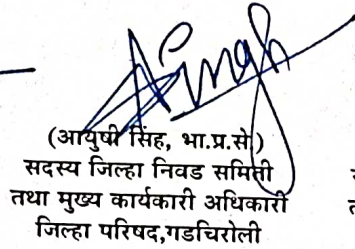 Singh
(आयुषी सिंह, भा.प्र.से.)
सदस्य जिल्हा निवड समिती
तथा मुख्य कार्यकारी अधिकारी
जिल्हा परिषद,गडचिरोली